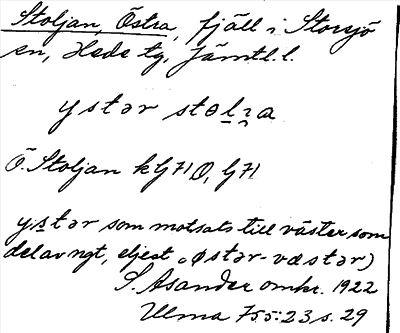 Stoljan, Östra, fjäll i Storsjö
sn, Hede tg, Jämtl. l.
ystər stolɜa
Ö. Stoljan k GJ 71 Ö, GJ 71
ystər som motsats till väster som
del av ngt, eljest østər-væstər)
S. Asander omkr. 1922
Ulma 755:23 s. 29